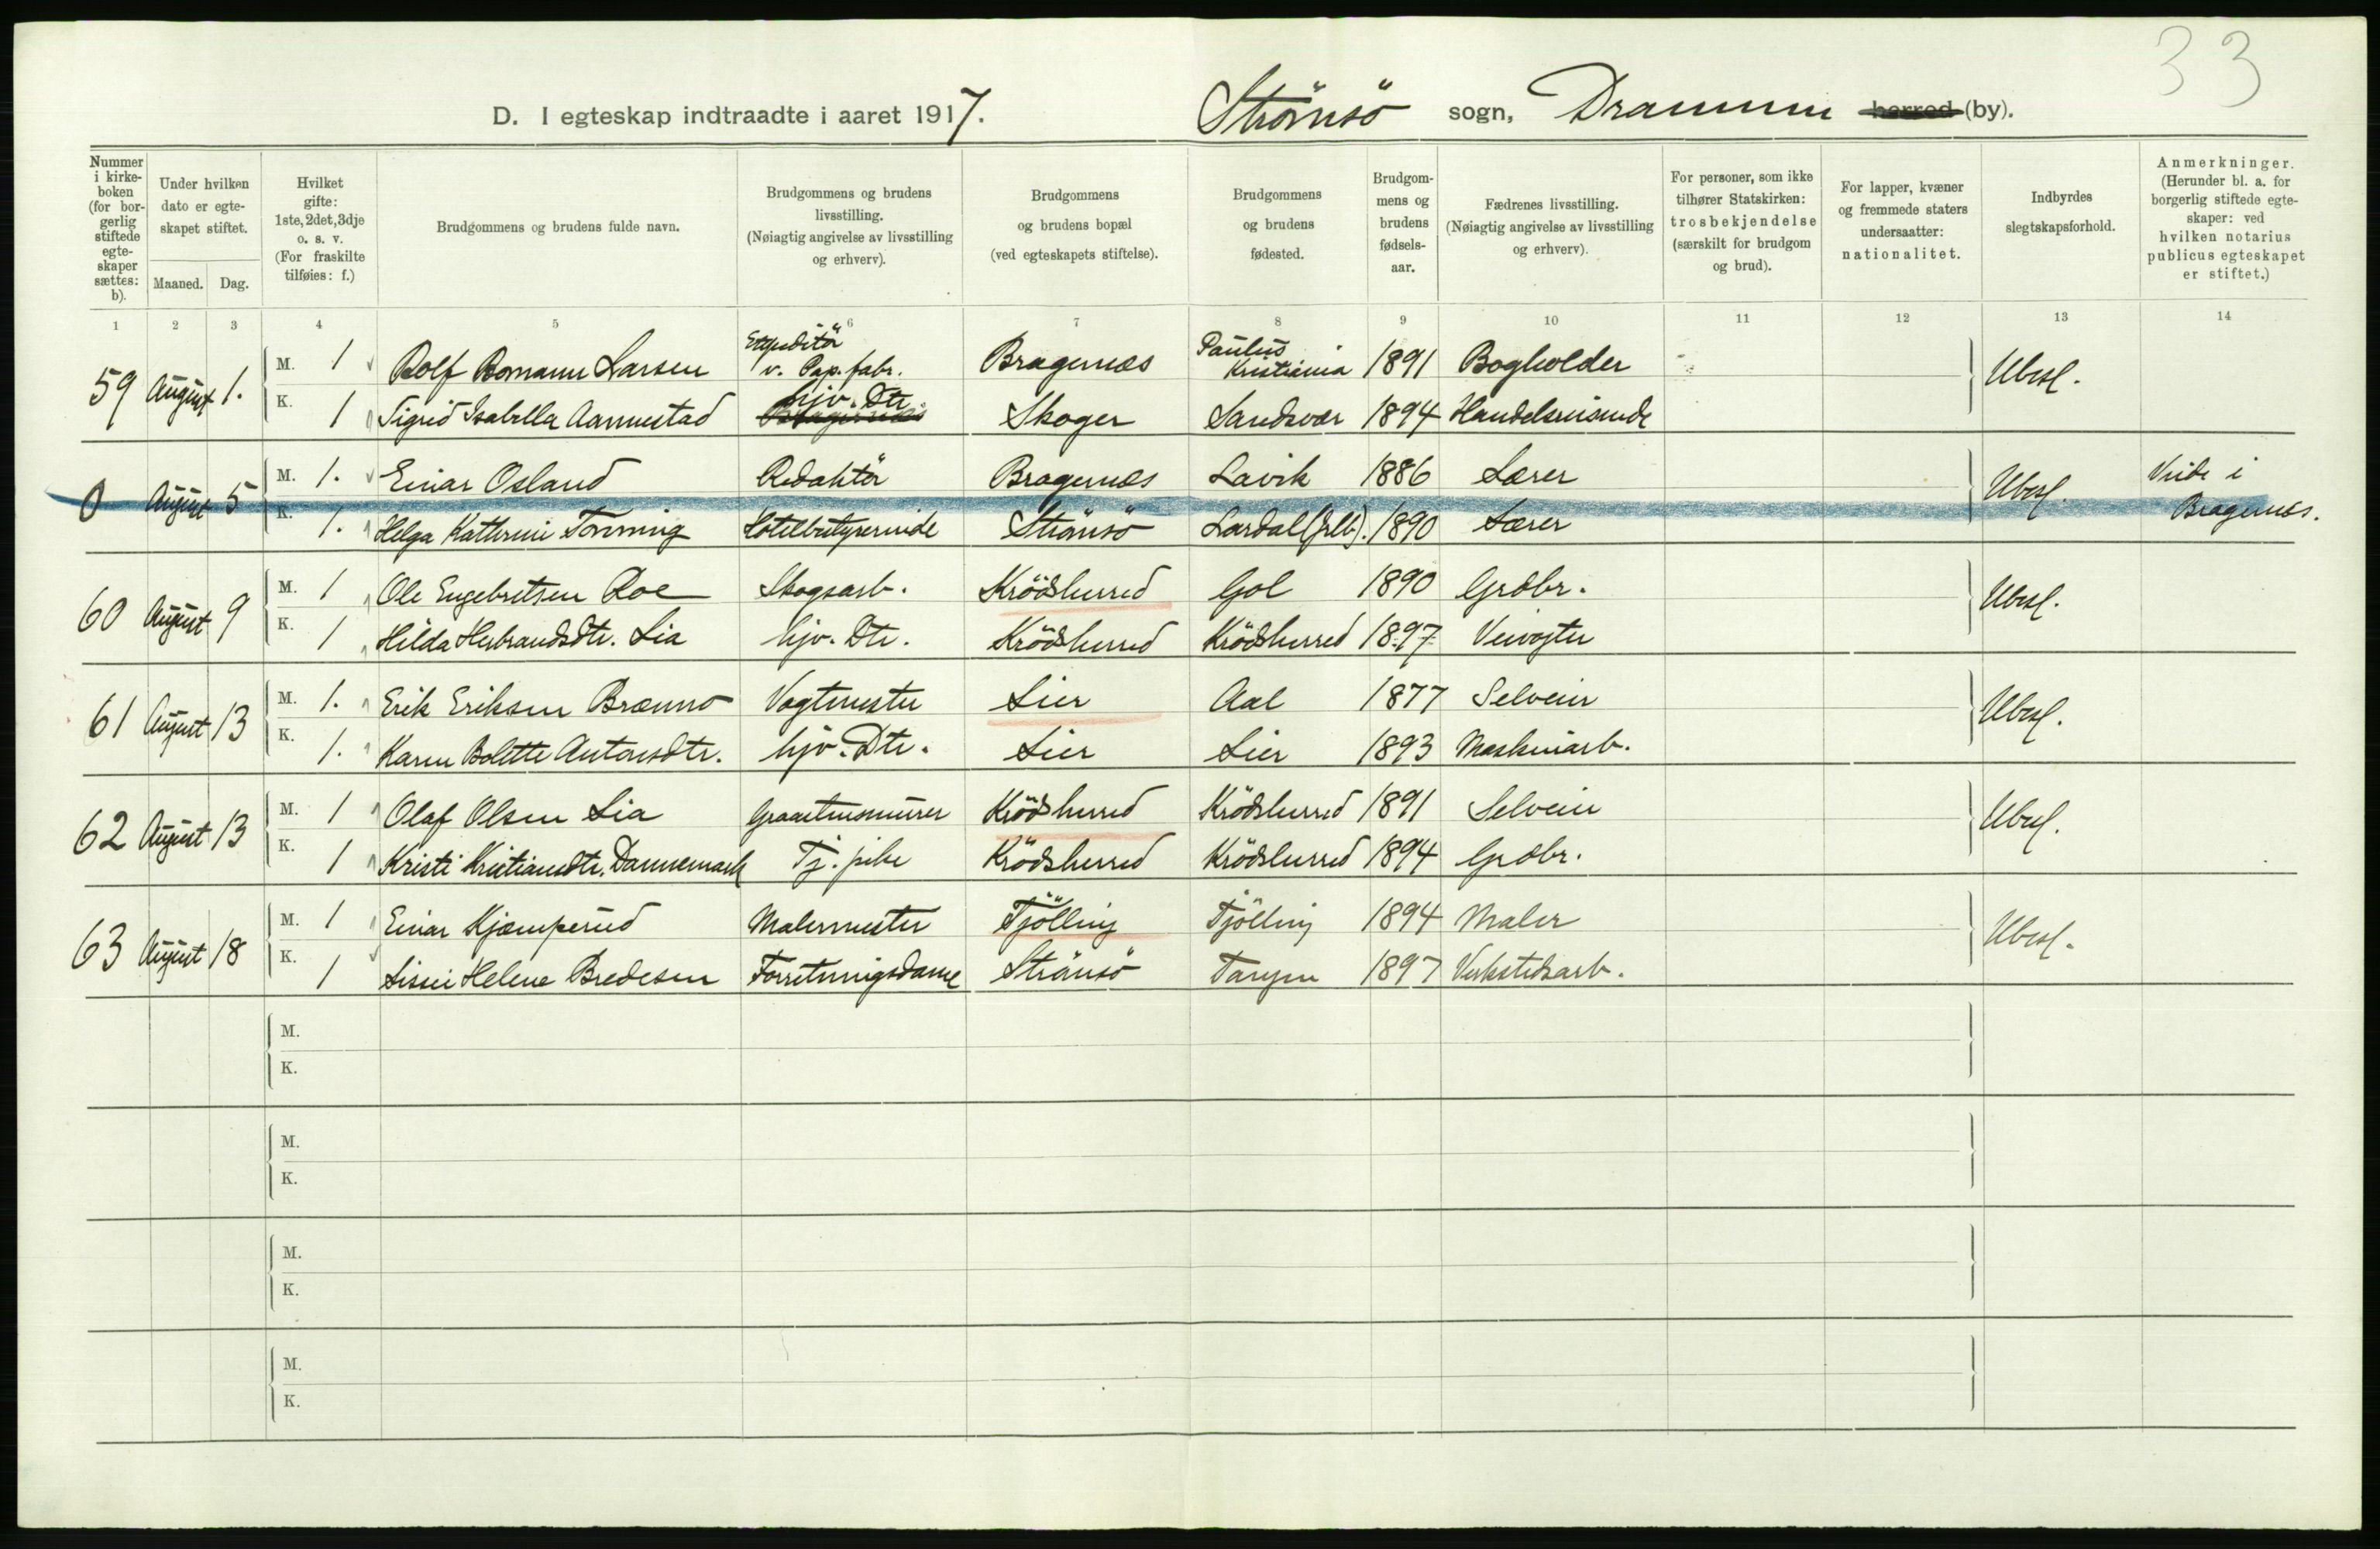 33
D. I egteskap indtraadte i aaret 1917. Strömsö sogn, Drammen herred (by).
Nummer i kirkeboken (for borgerlig stiftede egteskaper sættes: b).
Under hvilken dato er egteskapet stiftet.
Maaned. Dag.
Hvilket gifte: 1ste, 2det, 3dje o. s. v. (For fraskilte tilføies: f.)
Brudgommens og brudens fulde navn.
Brudgommens og brudens livsstilling. (Nøiagtig angivelse av livsstilling og erhverv).
Brudgommens og brudens bopæl (ved egteskapets stiftelse).
Brudgommens og brudens fødested.
Brudgommens og brudens fødselsaar.
Fædrenes livsstilling. (Nøiagtig angivelse av livsstilling og erhverv).
For personer, som ikke tilhører Statskirken: trosbekjendelse (særskilt for brudgom og brud).
For lapper, kvæner og fremmede staters undersaatter: nationalitet.
Indbyrdes slegtskapsforhold.
Anmerkninger. (Herunder bl. a. for borgerlig stiftede egteskaper: ved hvilken notarius publicus egteskapet er stiftet.)
1 2 3 4 5 6 7 8 9 10 11 12 13 14
59 August 1. M. 1 Rolf Bomann Larsen Expeditör v. Pap. fabr. Bragernæs Paulus Kristiania 1891 Bogholder Ubesl.
K. 1 Sigrid Isabella Aannestad hjv. Dtr. Skoger Sandsvær 1894 Handelsreisende
0 August 5 M. 1. Einar Osland Redaktör Bragernæs Lavik 1886 Lærer Ubesl. Viede i Bragernæs.
K. 1. Helga Kathrine Tonning Hotelbestyrerinde Strömsö Lardal 1890 Lærer
60 August 9 M. 1 Ole Engebretsen Roe Skogsarb. Krödsherred Gol 1890 Grdbr. Ubesl.
K. 1 Hilda Herbrandsdtr. Lia hjv. Dtr. Krödsherred Krödsherred 1897 Veivogter
61 August 13 M. 1. Erik Eriksen Brænno Vogtmester Lier Aal 1877 Selveier Ubesl.
K. 1. Karen Bolette Antonsdtr. hjv. Dtr. Lier Lier 1893 Maskinarb.
62 August 13 M. 1 Olaf Olsen Lia Graastensmurer Krödsherred Krödsherred 1891 Selveier Ubesl.
K. 1 Kristi Kristiansdtr. Dannemark Tj. pike Krödsherred Krödsherred 1894 Grdbr.
63 August 18 M. 1 Einar Kjæmperud Malermester Tjölling Tjölling 1894 Maler Ubesl.
K. 1 Lissie Helene Bredesen Forretningsdame Strömsö Tangen 1897 Verkstedsarb.
M.
K.
M.
K.
M.
K.
M.
K.